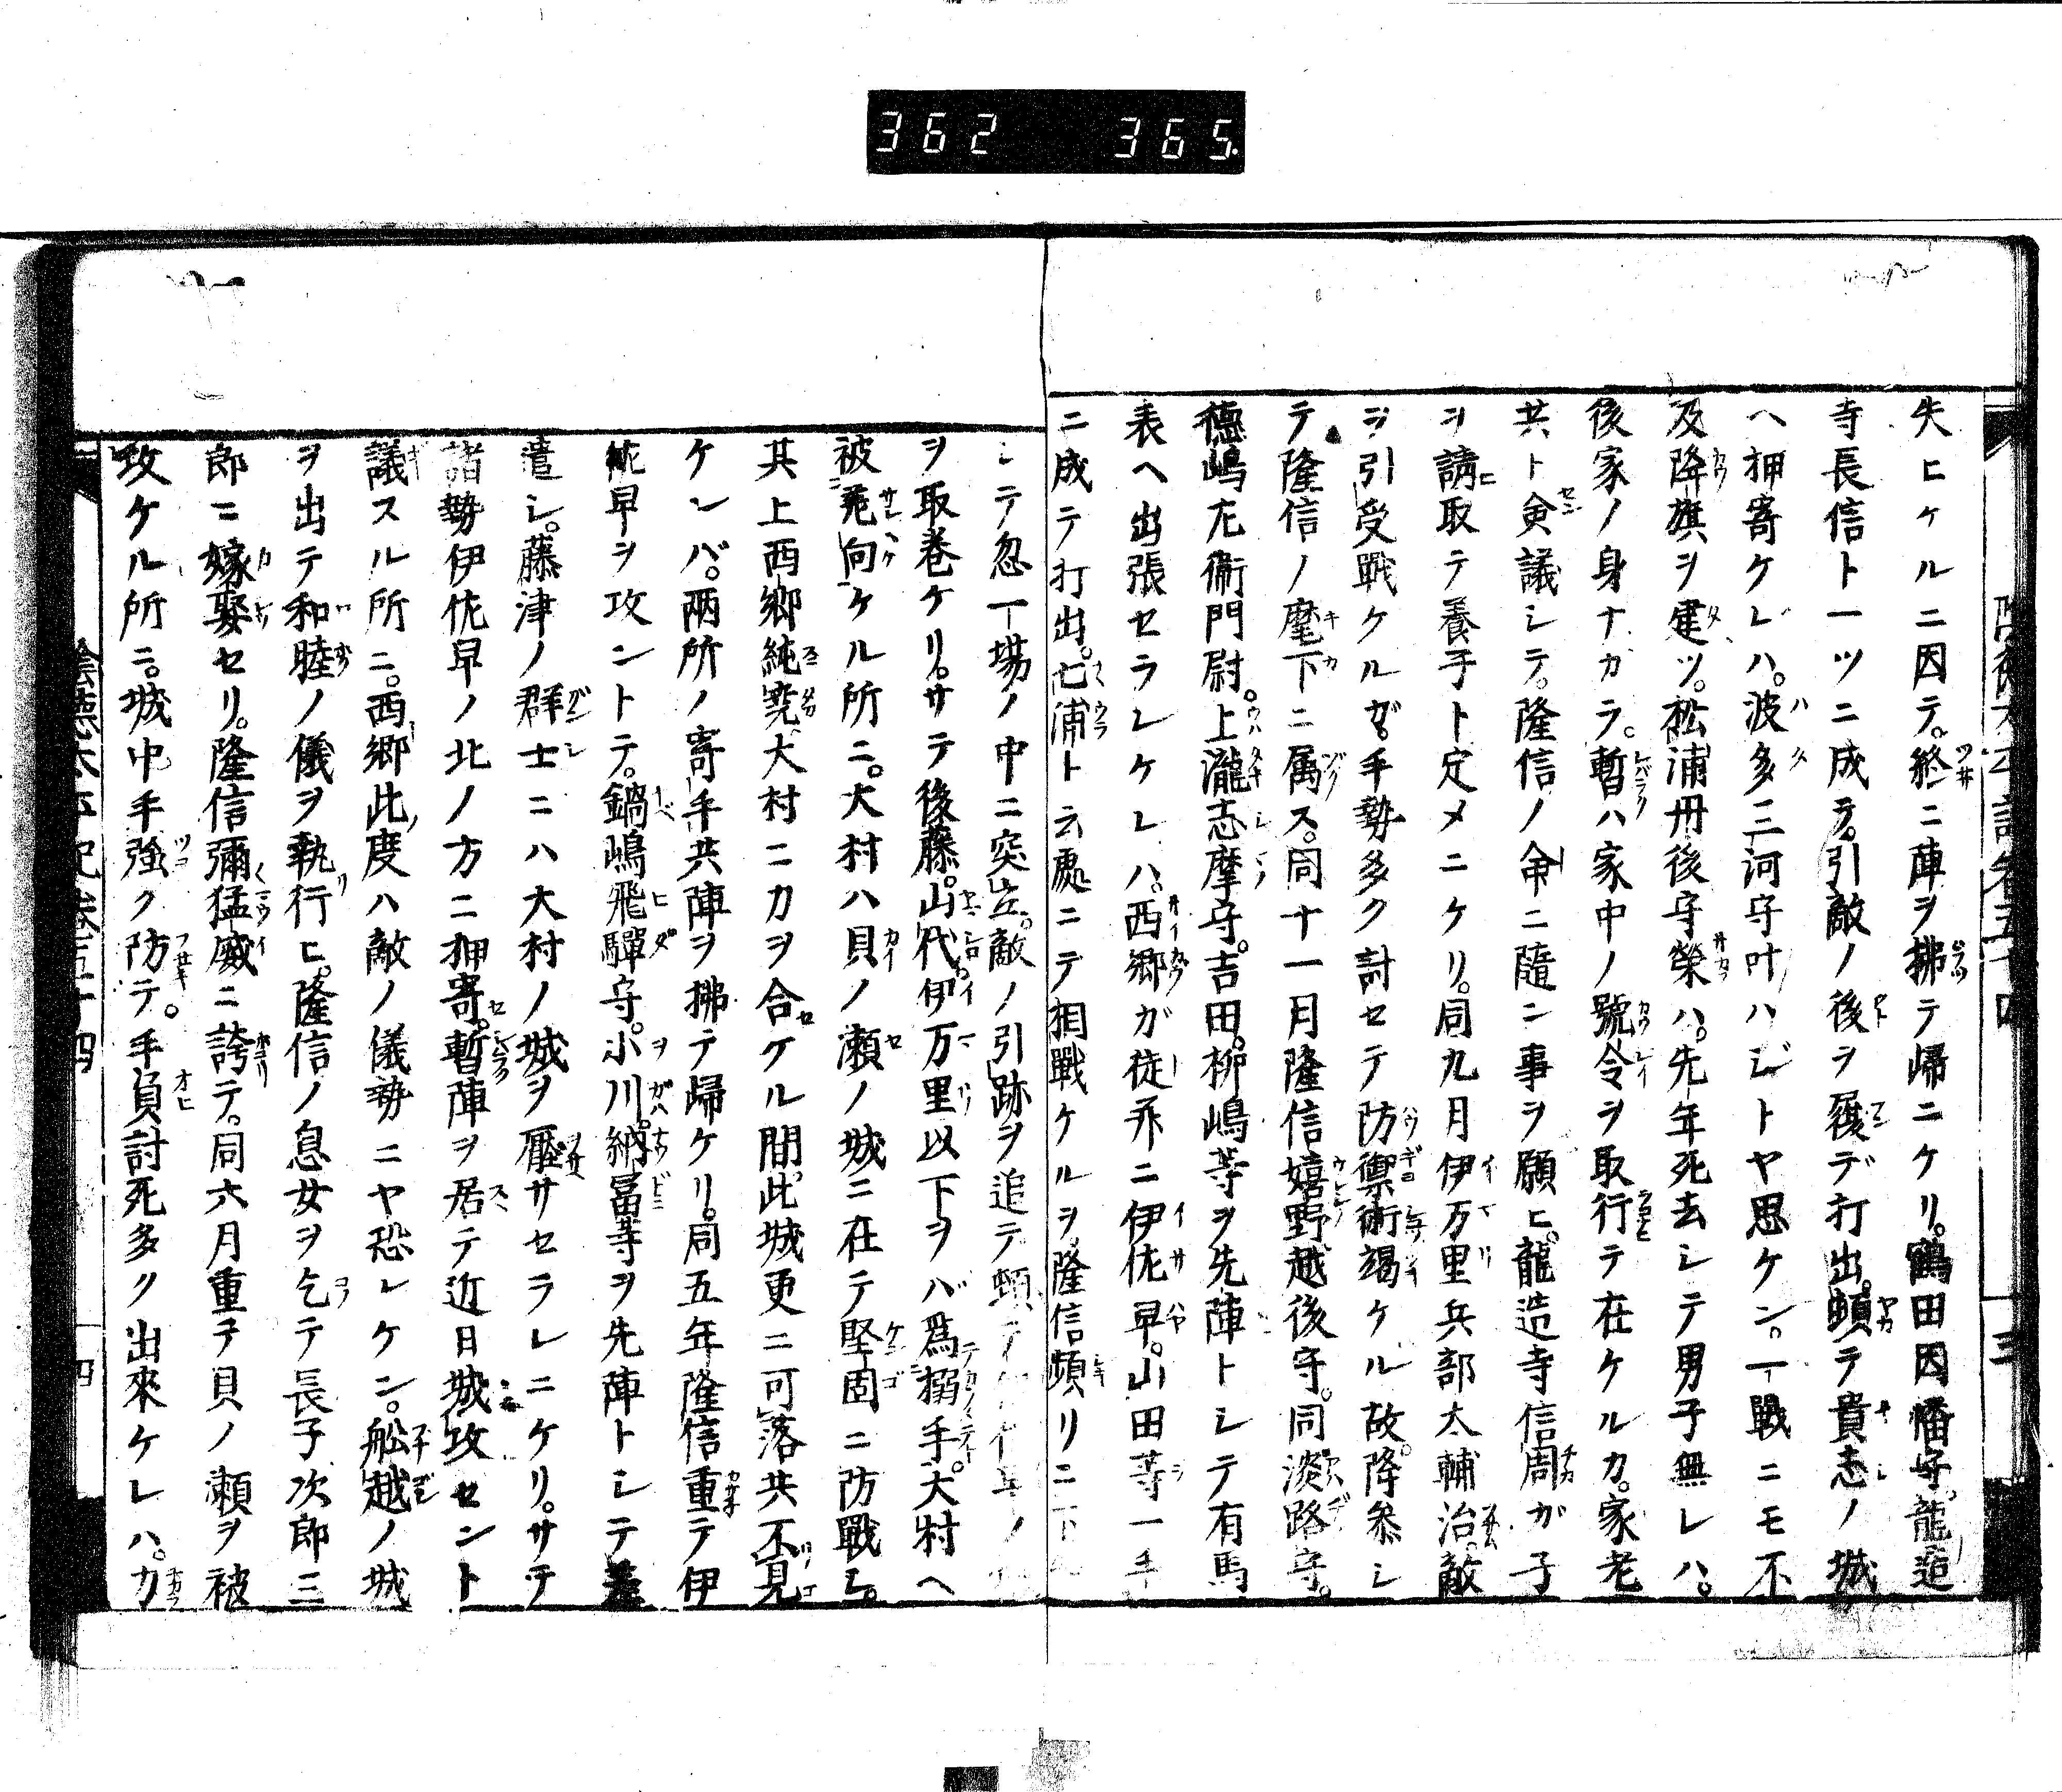 362 365
失ヒケルニ因テ。終ニ陣ヲ拂テ歸ニケリ。鶴田因幡守。龍造
寺長信ト一ツニ成テ。引敵ノ後ヲ履デ打出。頓テ貴志ノ城
ヘ押寄ケレハ。波多三河守叶ハジトヤ思ケン。一戰ニモ不
及降旗ヲ建ツ。松浦丹後守榮ハ。先年死去シテ男子無レハ。
後家ノ身ナカラ。暫ハ家中ノ號令ヲ取行テ在ケルカ。家老
共ト僉議シテ。隆信ノ命ニ隨ン事ヲ願ヒ。龍造寺信周ガ子
ヲ請取テ養子ト定メニケリ。同九月伊万里兵部太輔治。敵
ヲ引受戰ケルガ。手勢多ク討セテ防禦術竭ケル故。降參シ
テ隆信ノ麾下ニ属ス。同十一月隆信嬉野越後守。同淡路守。
德嶋左衞門尉。上瀧志摩守。吉田。柳嶋等ヲ先陣トシテ有馬
表ヘ出張セラレケレハ。西郷ガ徒乔ニ伊佐早。山田等一手
ニ成テ打出。七浦ト云處ニテ相戰ケルヲ。隆信頻リニ下
シテ忽一塲ノ中ニ突立。敵ノ引跡ヲ追テ頓テ
ヲ取巻ケリ。サテ後藤。山代。伊万里以下ヲバ爲搦手。大村ヘ
被差向ケル所ニ。大村ハ貝ノ瀬ノ城ニ在テ堅固ニ防戰シ。
其上西郷純堯大村ニカヲ合ケル間。此城更ニ可落共不見
ケレバ。兩所ノ寄手共陣ヲ拂テ歸ケリ。同五年隆信重テ伊
佐早ヲ攻ントテ。鍋嶋飛驒守。小川。納冨等ヲ先陣トシテ差
遣シ。藤津ノ群士ニハ大村ノ城ヲ壓サセラレニケリ。サテ
諸勢伊佐早ノ北ノ方ニ押寄。暫陣ヲ居テ近日城攻セント
議スル所ニ。西郷此度ハ敵ノ儀勢ニヤ恐レケン。舩越ノ城
ヲ出テ和睦ノ儀ヲ執行ヒ。隆信ノ息女ヲ乞テ長子次郎三
郎ニ嫁娶セリ。隆信彌猛威ニ誇テ。同六月重子貝ノ瀬ヲ被
攻ケル所ニ。城中手強ク防テ。手負討死多ク出來ケレハ。力
陰德太平記卷五十四 四